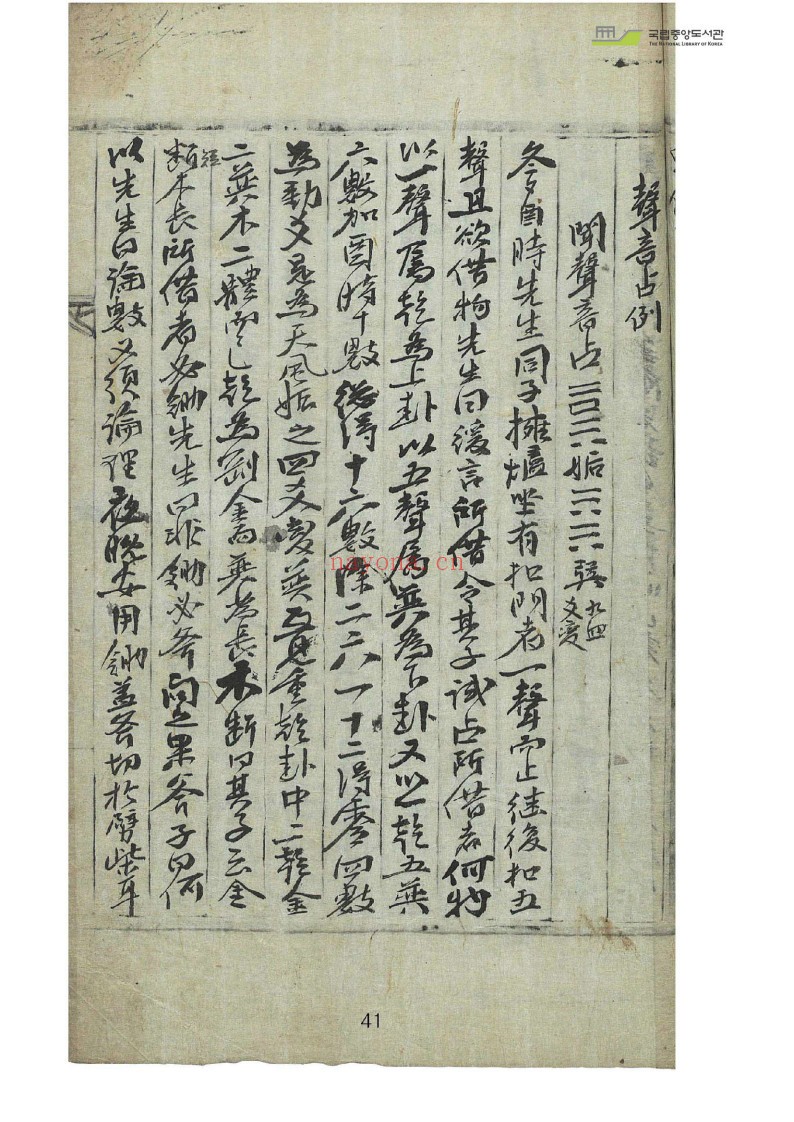 국립중앙도서관
THE NATIONAL LIBRARY OF KOREA
聲音占例
聞聲音占 姤 巽 九四爻變
冬夕酉時先生同子擁爐坐有扣門者一聲而止継後扣五
聲且欲借物先生曰緩言所借令其子試占所借者何物
以一聲属乾為上卦以五聲属巽為下卦又以一乾五巽
六數加酉時十數緫得十六數除二六一十二得零四數
為動爻是為天風姤之四爻變巽互見重乾卦中二乾金
二巽木二體而已乾為剛金而巽為長木断曰其子云金
短木長所借者必鋤先生曰非鋤必斧問之果斧子曰何
以先生曰論數必須論理夜晚安用鋤盖斧切於劈柴耳
nayona.cn
41